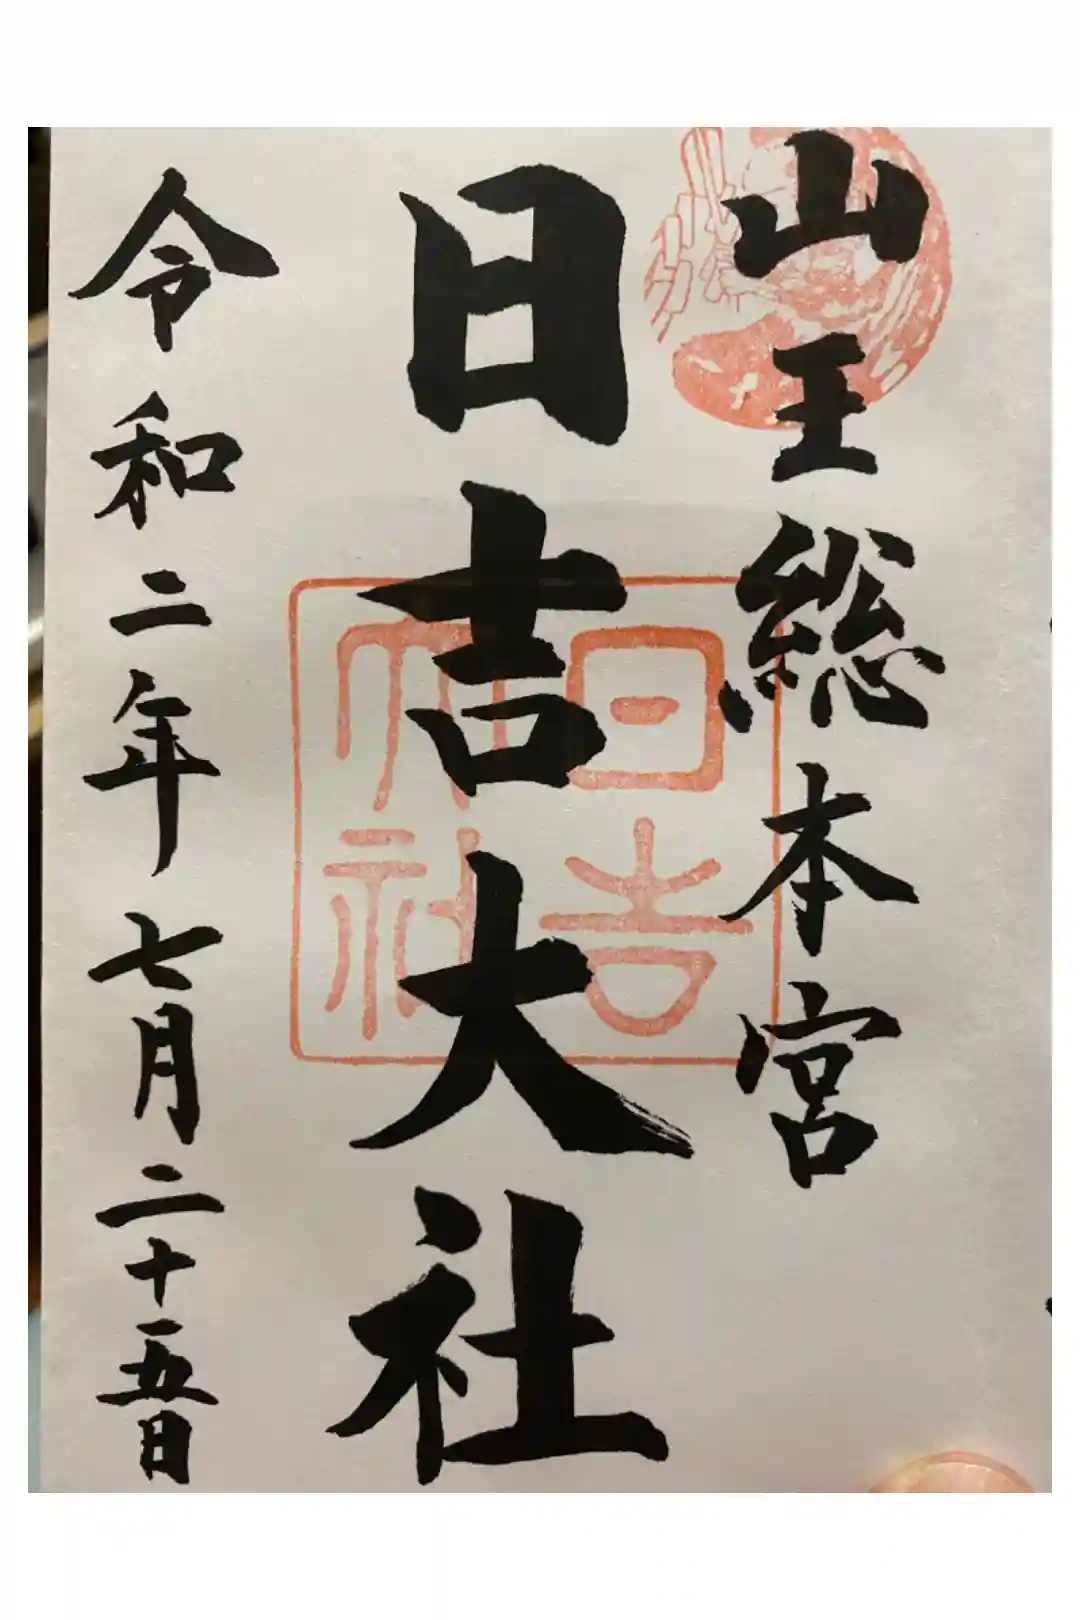 山王総本宮
日吉大社
日吉大社
令和二年七月二十五日